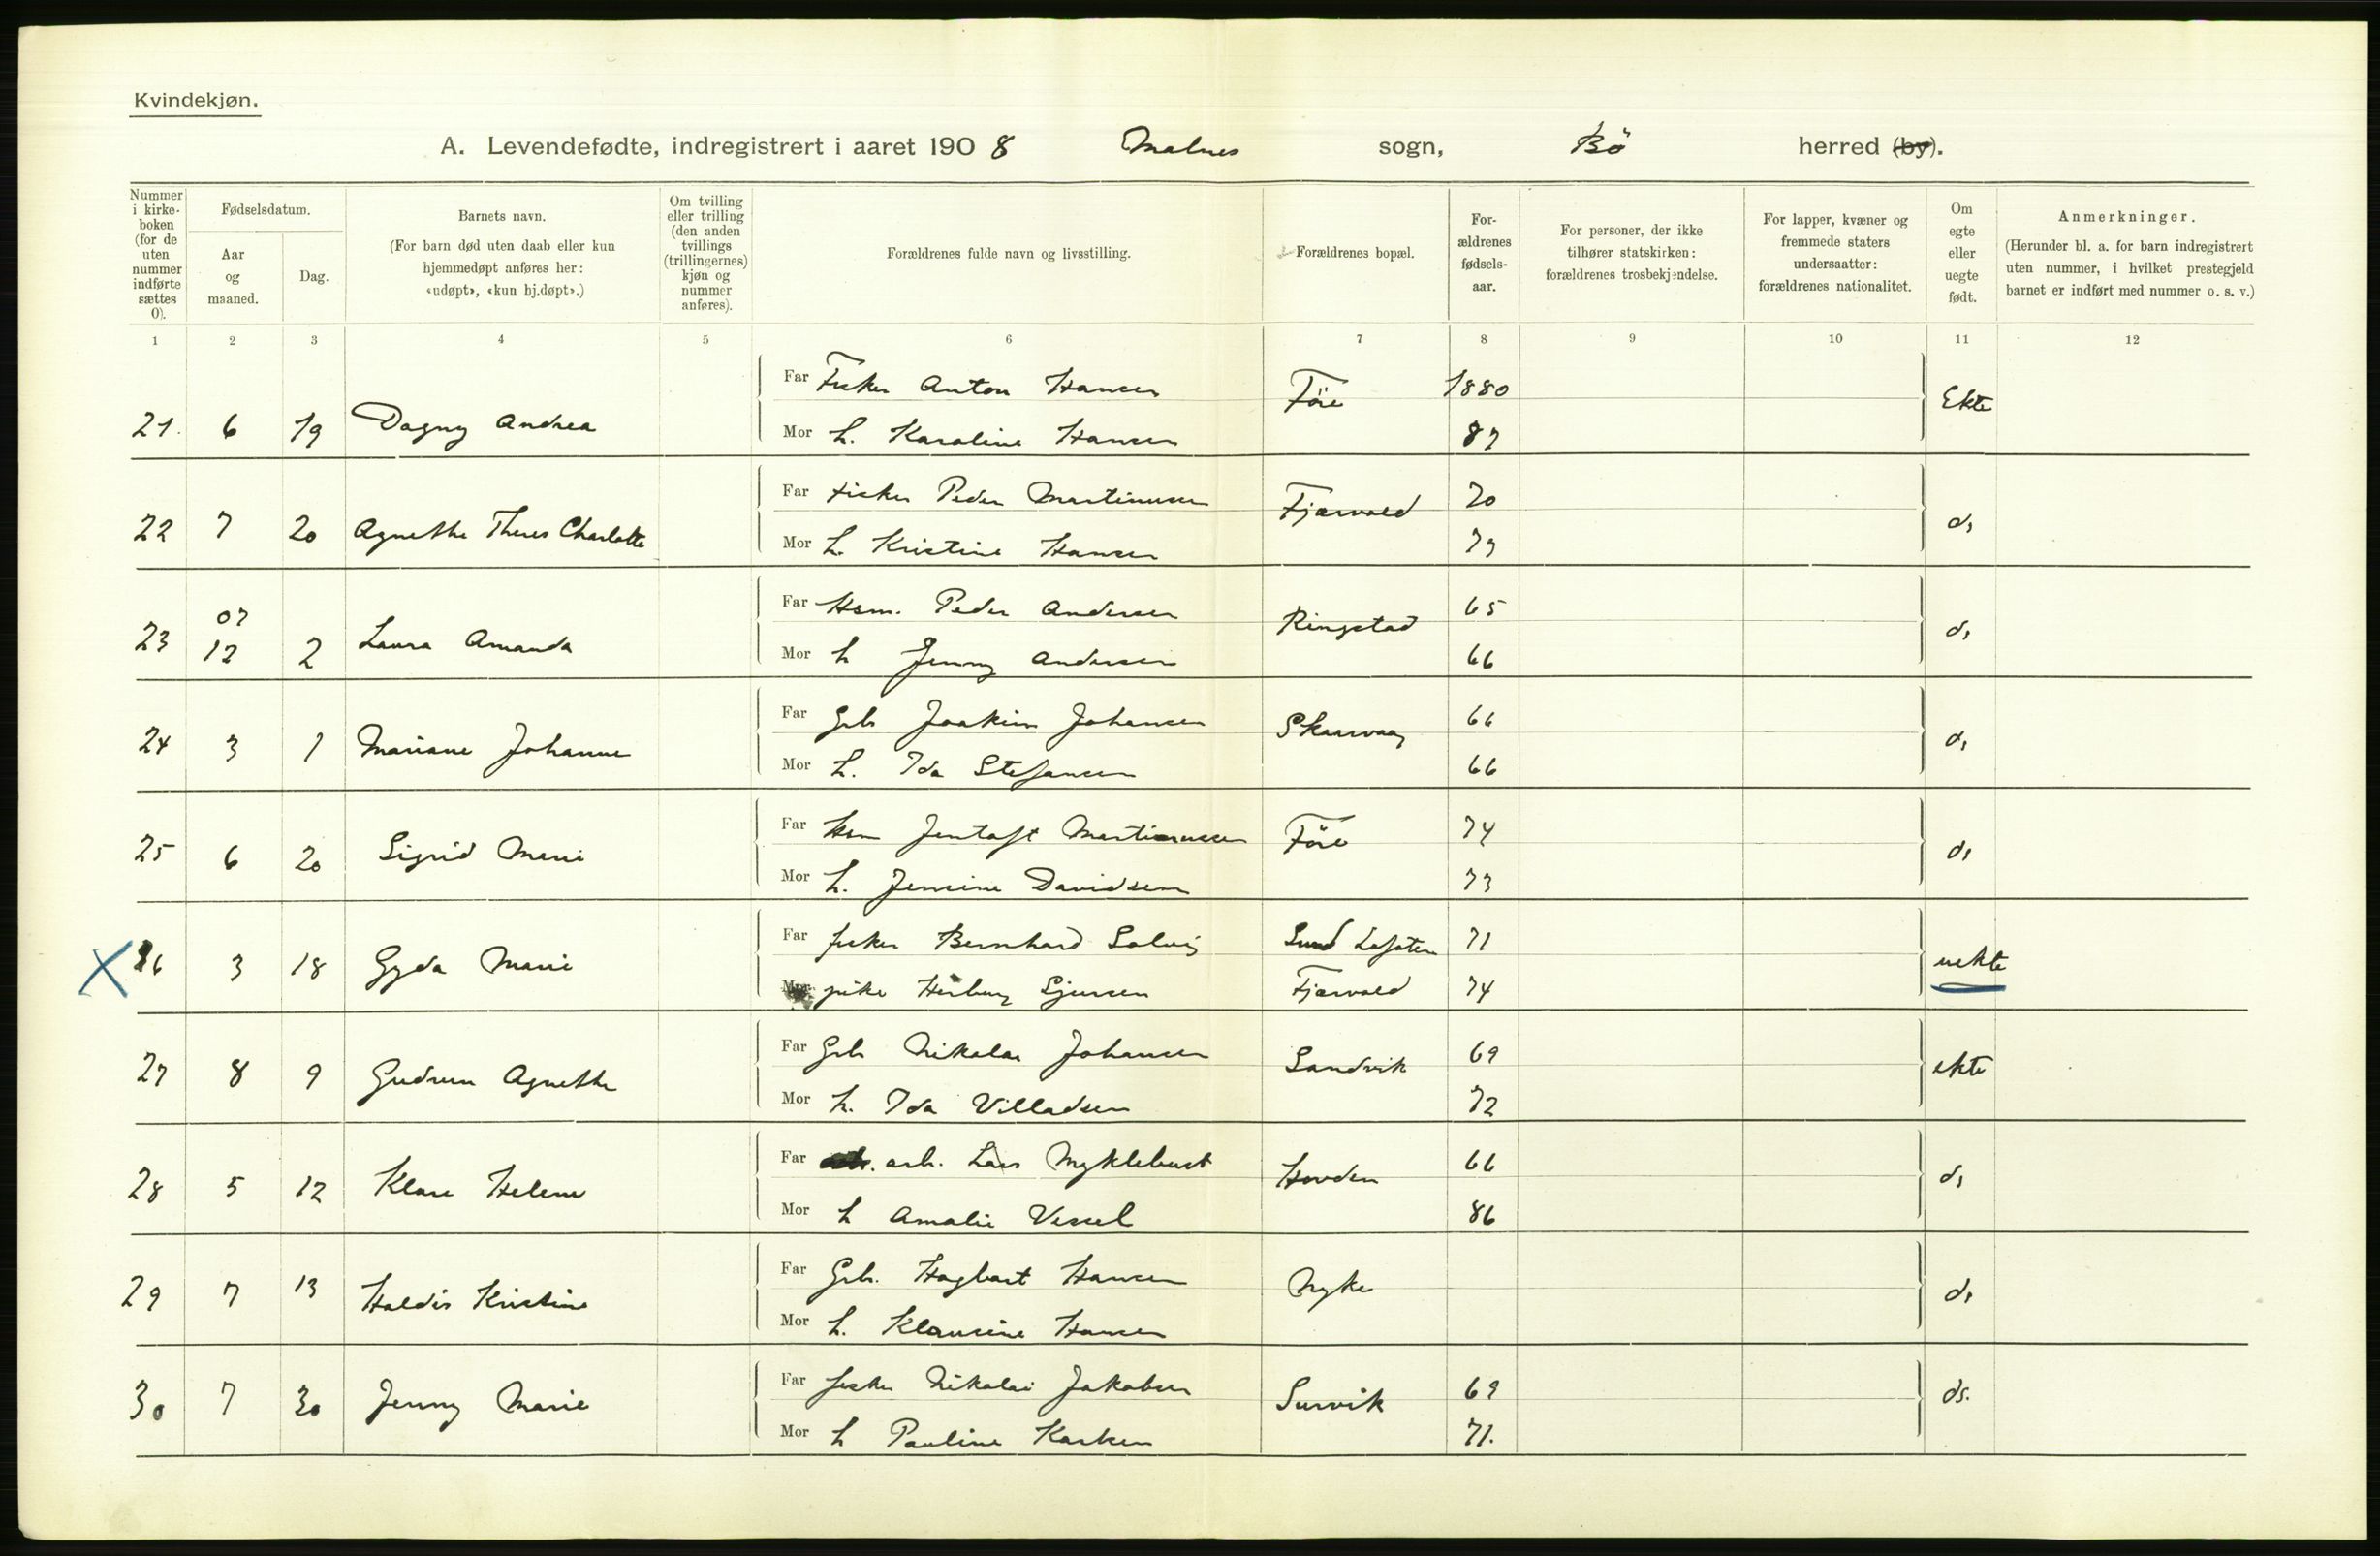 Kvindekjøn.
A. Levendefødte, indregistrert i aaret 1908 Malnes sogn, Bö herred (by).
Nummer i kirke-boken (for de uten nummer indførte sættes 0).
Fødselsdatum.
Aar og maaned.
Dag.
Barnets navn.
(For barn død uten daab eller kun hjemmedøpt anføres her: «udøpt», «kun hj.døpt».)
Om tvilling eller trilling (den anden tvillings (trillingernes) kjøn og nummer anføres).
Forældrenes fulde navn og livsstilling.
Forældrenes bopæl.
For-ældrenes fødsels-aar.
For personer, der ikke tilhører statskirken: forældrenes trosbekjendelse.
For lapper, kvæner og fremmede staters undersaatter: forældrenes nationalitet.
Om egte eller uegte født.
Anmerkninger.
(Herunder bl. a. for barn indregistrert uten nummer, i hvilket prestegjeld barnet er indført med nummer o. s. v.)
1 2 3 4 5 6 7 8 9 10 11 12
Far Fisker Anton Hansen Före 1880 Ekte
21. 6 19 Dagny Andrea
Mor h. Karoline Hansen 87
Far fisker Peder Martinussen Fjærvold 70
22 7 20 Agnethe Theres Charlotte ds
Mor h. Kristine Hansen 79
Far Hsm. Peder Andersen Ringstad 65
23 07 12 2 Laura Amanda ds
Mor h Jenny Andersen 66
Far Grb Joakim Johansen Skaarvaag 66
24 3 1 Mariane Johanne ds
Mor h. Ida Stefansen 66
Far Hsm Jentoft Martinussen Före 74
25 6 20 Sigrid Marie ds
Mor h. Jensine Davidsen 73
Far fisker Bernhard Solvig Sund Lofoten 71
X 26 3 18 Gyda Marie uekte
Mor pike Herborg Sjursen Fjærvold 74
Far Grb Nikolai Johansen Sandvik 69
27 8 9 Gudrun Agnethe ekte
Mor h. Ida Villadsen 72
Far arb. Lars Myklebust Hovden 66
28 5 12 Klare Helene ds
Mor h Amalie Vessel 86
Far Grb. Hagbart Hansen Nyke
29 7 13 Haldis Kristine ds
Mor h. Klausine Hansen
Far fisker Nikolai Jakobsen Survik 69
30 7 30 Jenny Marie ds.
Mor h Pauline Karlsen 71.